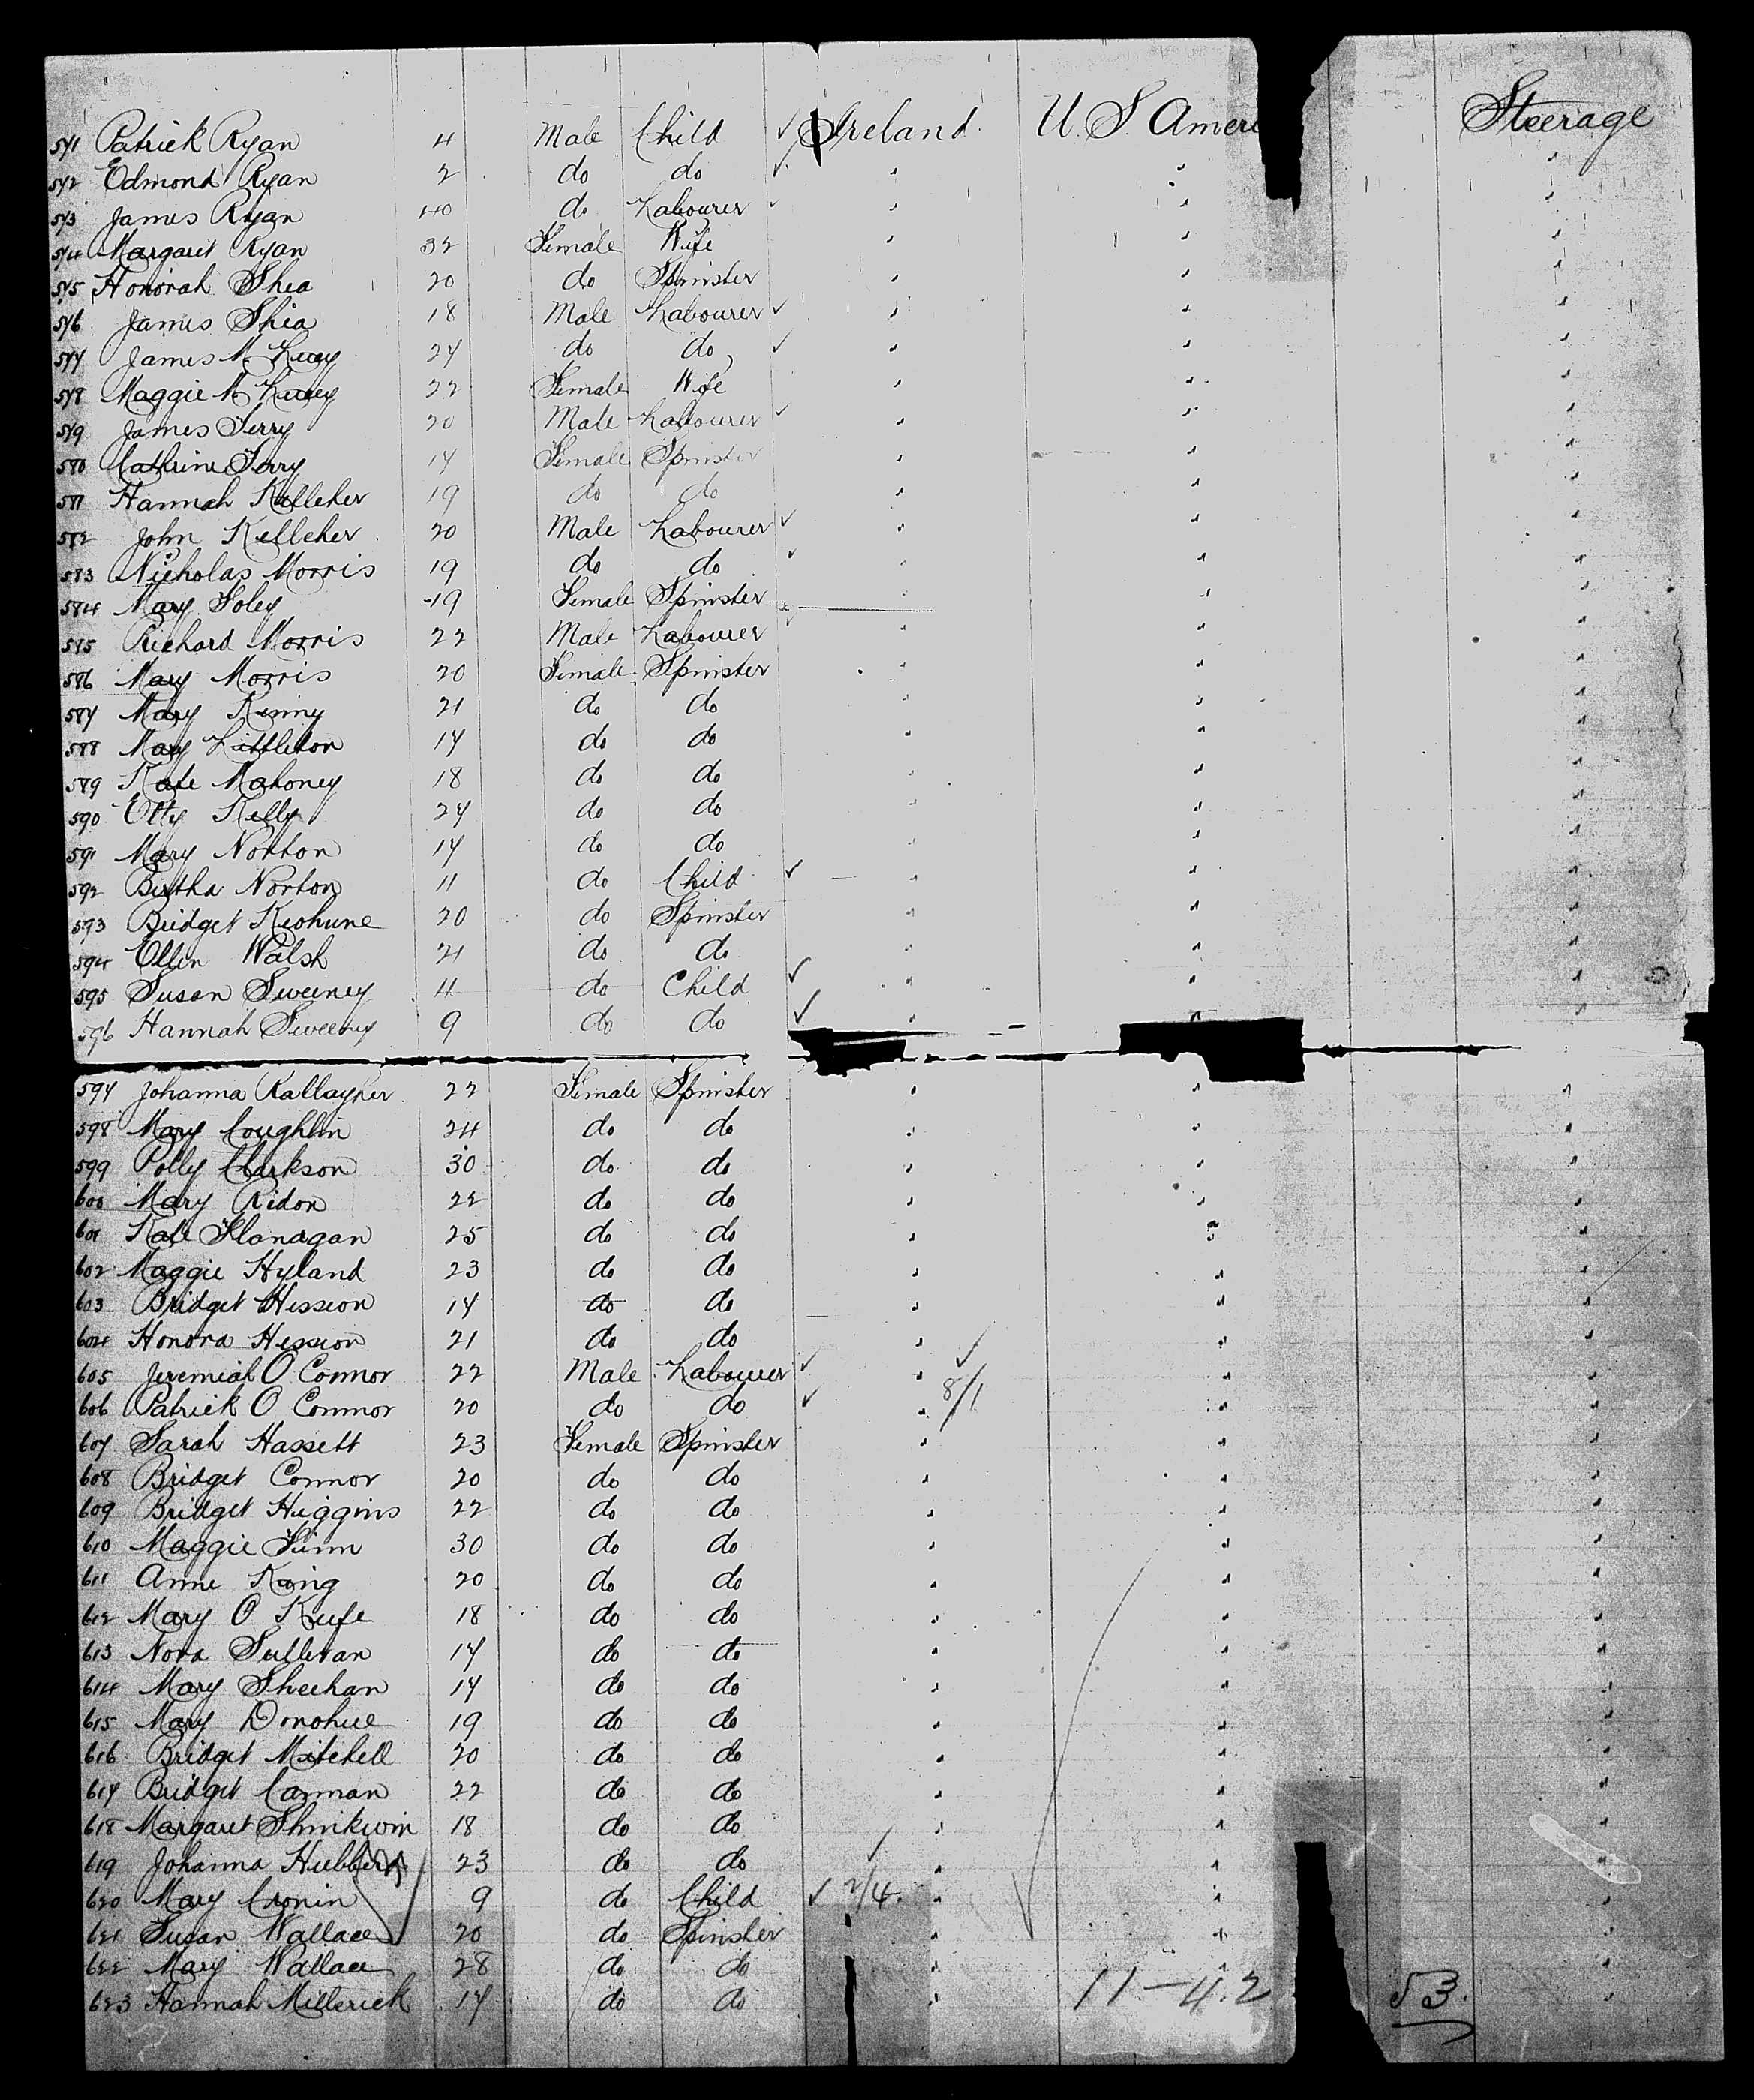 571 Patrick Ryan 4 Male Child ✓ Ireland U. S. Ameri Steerage
572 Edmond Ryan 2 do do ✓ " " "
573 James Ryan 40 do Labourer ✓ " " "
574 Margaret Ryan 32 Female Wife " " "
575 Honorah Shea 20 do Spinster " " "
576 James Shea 18 Male Labourer ✓ " " "
577 James Mc 27 do do ✓ " " "
578 Maggie Mc 22 Female Wife " " "
579 James Terry 20 Male Labourer ✓ " " "
580 Cathrine Terry 17 Female Spinster " " "
581 Hannah Kelleher 19 do do " " "
582 John Kelleher 20 Male Labourer ✓ " " "
583 Nicholas Morris 19 do do ✓ " " "
584 Mary Foley 19 Female Spinster " " "
585 Richard Morris 22 Male Labourer " " "
586 Mary Morris 20 Female Spinster " " "
587 Mary Kinny 21 do do " " "
588 Mary Littleton 17 do do " " "
589 Kate Mahoney 18 do do " " "
590 Etty Kelly 27 do do " " "
591 Mary Norton 17 do do " " "
592 Bertha Norton 11 do Child ✓ " " "
593 Bridget Keohune 20 do Spinster " " "
594 Ellen Walsh 21 do do " " "
595 Susan Sweeney 11 do Child ✓ " " "
596 Hannah Sweeney 9 do do ✓ " " "
597 Johanna Kallagher 22 Female Spinster " " "
598 Mary Coughlin 24 do do " " "
599 Polly Clarkson 30 do do " " "
600 Mary Ridon 22 do do " " "
601 Kate Flanagan 25 do do " " "
602 Maggie Hyland 23 do do " " "
603 Bridget Hession 17 do do " " "
604 Honora Hession 21 do do " " "
605 Jeremiah O Connor 22 Male Labourer ✓ " ✓ " "
606 Patrick O Connor 20 do do ✓ " 8/1 " "
607 Sarah Hassett 23 Female Spinster " " "
608 Bridget Connor 20 do do " " "
609 Bridget Higgins 22 do do " " "
610 Maggie Finn 30 do do " " "
611 Anne King 20 do do " " "
612 Mary O Keefe 18 do do " " "
613 Nora Sullivan 17 do do " " "
614 Mary Sheehan 17 do do " " "
615 Mary Donohue 19 do do " " "
616 Bridget Mitchell 20 do do " " "
617 Bridget Cannan 22 do do " " "
618 Margaret Shinkwin 18 do do " " "
619 Johanna Hubbert 23 do do ✓ " " "
620 Mary Cronin 9 do Child ✓ 2/4. " " "
621 Susan Wallace 20 do Spinster " " "
622 Mary Wallace 28 do do " " "
623 Hannah Millerick 17 do do " " "
11-42 53.